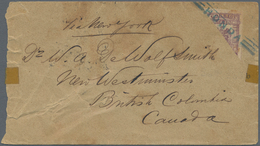 Via New York
Dr W. A. DeWolf Smith
New Westminster
British Columbia
Canada